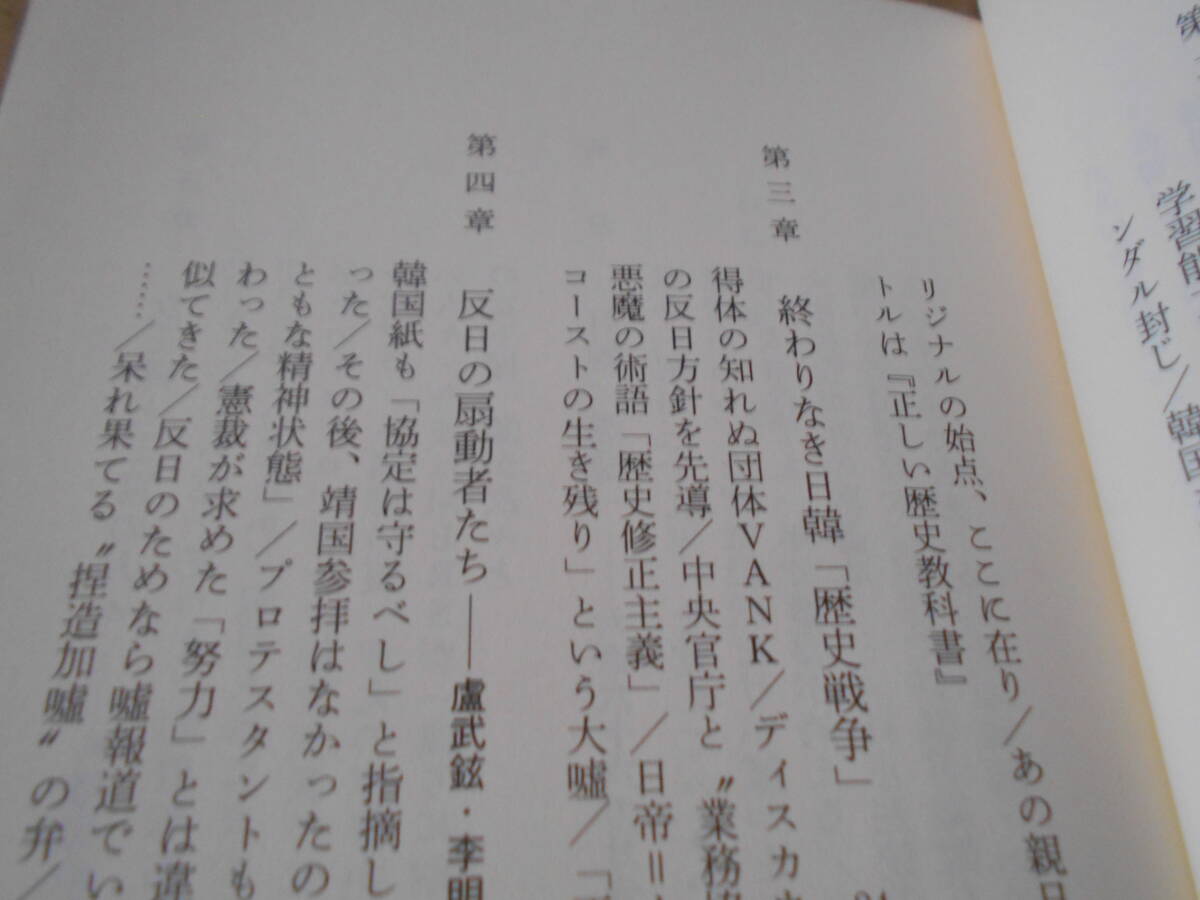 学習能
ンダル封じ/韓国
リジナルの始点、ここに在り/あの親日
トルは『正しい歴史教科書』
第三章 終わりなき日韓「歴史戦争」
得体の知れぬ団体VANK/ディスカ
の反日方針を先導/中央官庁と〝業務協
悪魔の術語「歴史修正主義」/日帝=
コーストの生き残り」という大嘘/「
第四章 反日の扇動者たち──盧武鉉・李明
韓国紙も「協定は守るべし」と指摘し
った/その後、靖国参拝はなかったの
ともな精神状態」/プロテスタントも
わった/憲裁が求めた「努力」とは違
似てきた/反日のためなら嘘報道でい
……/呆れ果てる〝捏造加嘘〟の弁/